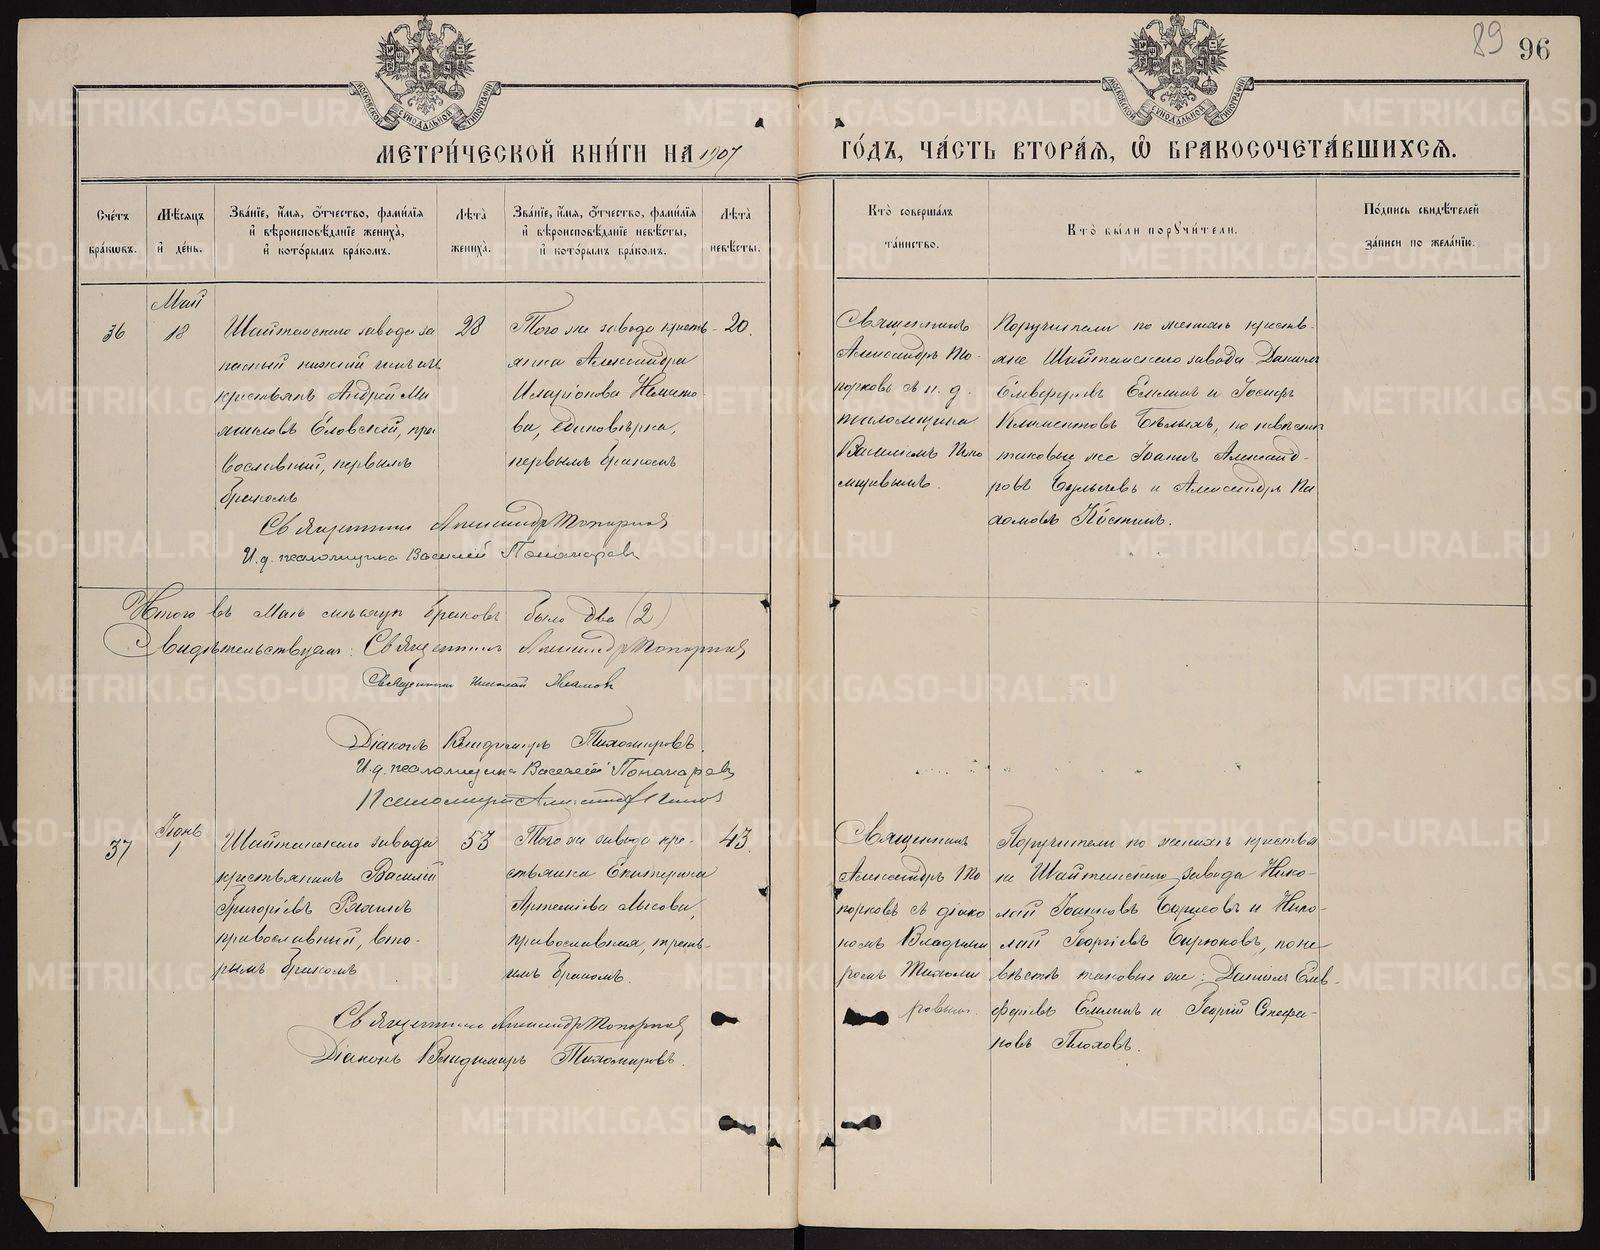 89
96
МОСКОВСКОЙ СѴНОДАЛЬНОЙ ТИПОГРАФІИ
МОСКОВСКОЙ СѴНОДАЛЬНОЙ ТИПОГРАФІИ
МЕТРИ́ЧЕСКОЙ КНИ́ГИ НА 1907
ГО́ДЪ, ЧА́СТЬ ВТОРА́Ѧ, Ѽ БРАКОСОЧЕТА́ВШИХСѦ.
Сче́тъ бра́кѡвъ.
Мѣ́сѧцъ и҆ де́нь.
Зва́нїе, и҆́мѧ, ѻ҆́тчество, фами́лїѧ и҆ вѣроисповѣ́данїе жениха̀, и҆ кото́рымъ бра́комъ.
Лѣ́та жениха̀.
Зва́нїе, и҆́мѧ, ѻ҆́тчество, фами́лїѧ и҆ вѣроисповѣ́данїе невѣ́сты, и҆ кото́рымъ бра́комъ.
Лѣ́та невѣ́сты.
Кто̀ соверша́лъ та́инство.
Кто̀ бы́ли порꙋчи́тели.
По́дпись свидѣ́телей за́писи по жела́нїю.
Май
36
18
Шайтанскаго завода за
пасный нижній чинъ изъ
крестьянъ Андрей Ми
хаиловъ Еловскій, пра
вославный, первымъ
бракомъ
28
Того же завода кресть-
янка Александра
Иларіонова
ва, единовѣрка,
первымъ бракомъ
20.
Священникъ
Александръ То-
порковъ съ и. д.
псаломщика
Василіемъ Поно
маревымъ.
Поручители по женихѣ крестья-
не Шайтанскаго завода Даніилъ
Елевферіевъ Еклинъ и Іосифъ
Климентовъ Бѣлыхъ, по невѣстѣ
таковые же Іоаннъ Александ-
ровъ и Александръ Па
хомовъ Костинъ.
Священникъ Александръ Топорковъ
И. д. псаломщика Василій Пономаревъ
Итого въ Маѣ мѣсяцѣ браковъ было два (2)
Свидѣтельствуемъ: Священникъ Александръ Топорковъ
Священникъ Николай
Діаконъ Владиміръ Тихомировъ.
И. д. псаломщика Василій Пономаревъ
Псаломщикъ
Іюнь
37
1
Шайтанскаго завода
крестьянинъ Василій
Григоріевъ
православный, вто-
рымъ бракомъ
53
Того же завода кре-
стьянка Екатерина
Артеміева Лисова,
православная, треть-
имъ бракомъ.
43.
Священникъ
Александръ То
порковъ съ діако
номъ Владими
ромъ Тихоми
ровымъ.
Поручители по женихѣ крестья
не Шайтанскаго завода Нико-
лай Іоанновъ и Нико-
лай Георгіевъ Бирюковъ, по не-
вѣстѣ таковые же: Даніилъ Елев-
феріевъ Еклинъ и Георгій Стефа-
новъ Плоховъ.
Священникъ Александръ Топорковъ
Діаконъ Владиміръ Тихомировъ.
METRIKI.GASO-URAL.RU